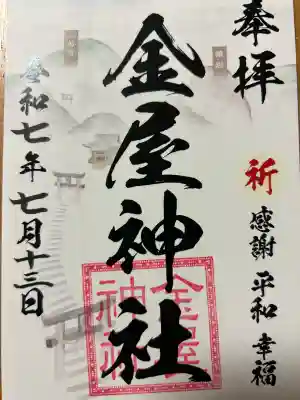 奉拝
祈 感謝 平和 幸福
金屋神社
金屋
神社
令和七年七月十三日